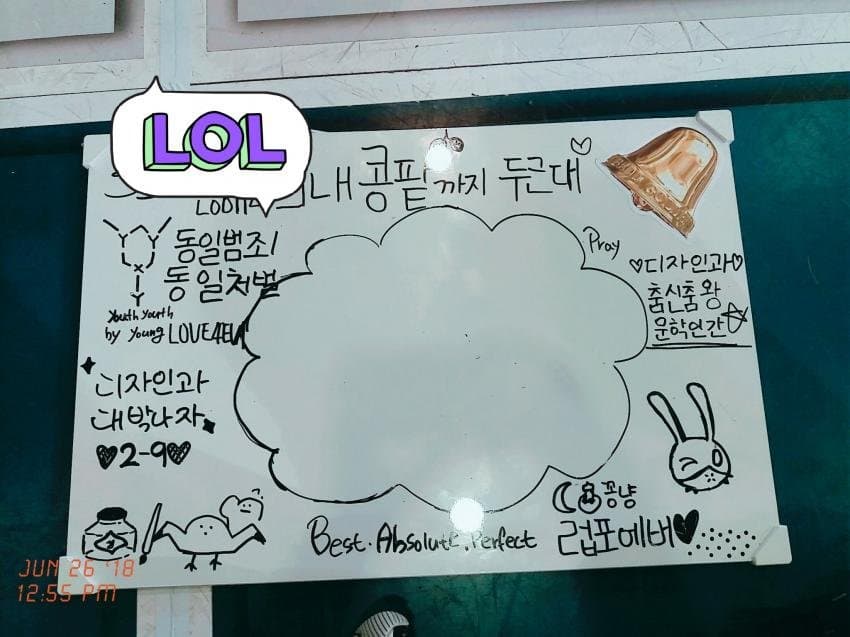 LOL
내콩팥까지 두근대
동일범죄
동일처벌
Youth Youth
by Young LOVE4EVA
디자인과
대박나자
2-9
Pray
디자인과
춤신춤왕
문학인간
Best. Absolute. Perfect
꽁냥
럽포에버
JUN 26 '18
12:55 PM